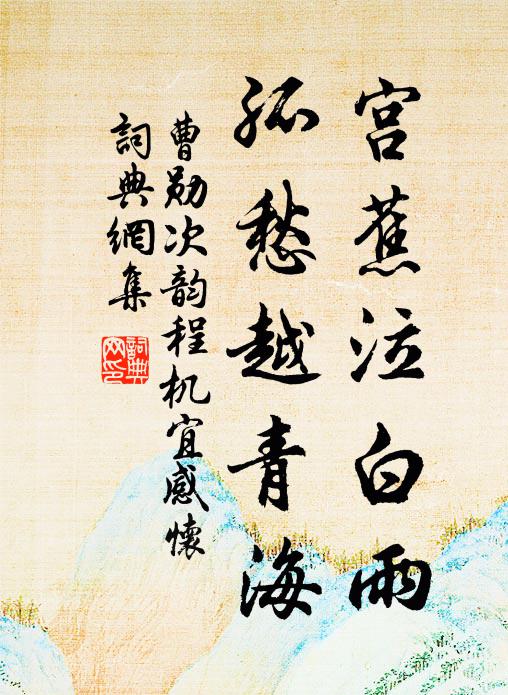 宫蕉泣白雨
孤愁越青海
曹勋次韵程机宜感懷
詞典網集
詞典網印